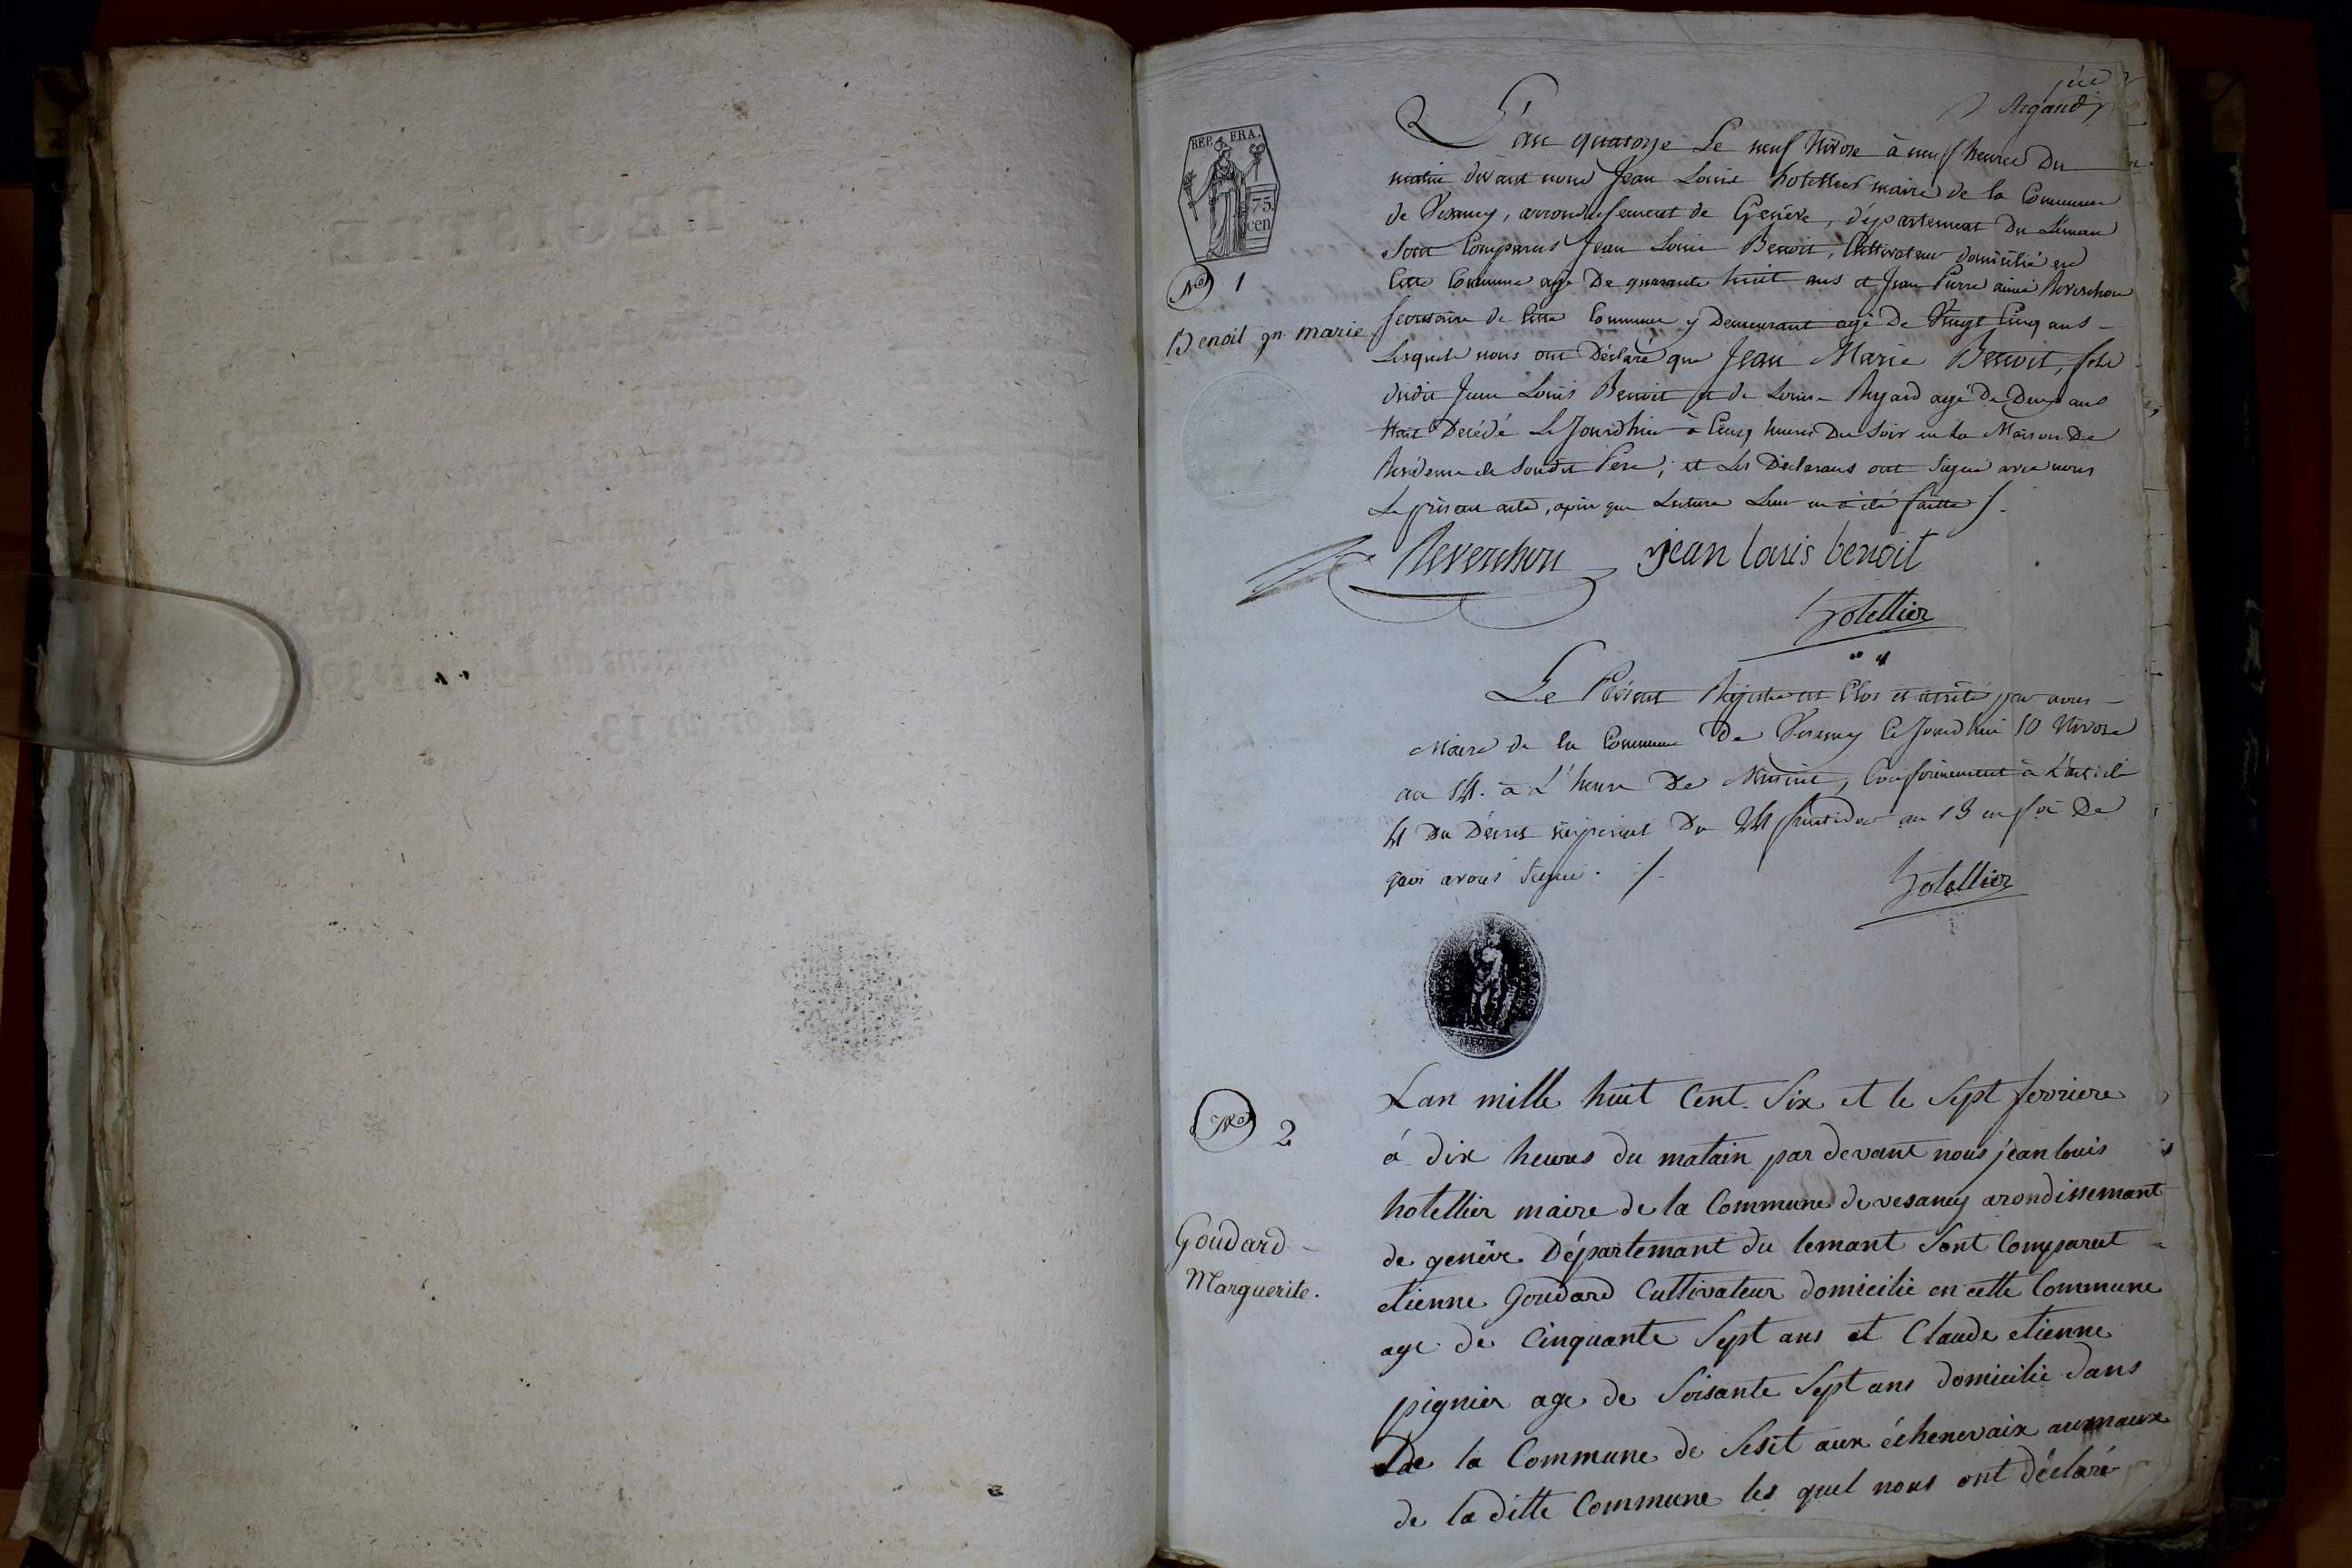 Argand
REP. FRA.
75
cen
L'an quatorze Le neuf Nivose à neuf heures Du
matin devant nous Jean Louis hotellier maire de la Commune
de Vesancy, arrondissement de Genève, département Du Léman
Sont Comparus Jean Louis Benoit, Cultivateur domicilié en
Cette Commune agé De quarante huit ans et Jean Pierre aimé Reverchon
secretaire de Cette Commune y Demeurant agé De Vingt Cinq ans
Lesquels nous ont Déclaré que Jean Marie Benoit, fils
dudit Jean Louis Benoit et de Louise agé De Deux ans
était Decédé à Cinq heures Du Soir en la Maison De
Residence de Sondit Pere, et Les Déclarans ont Signé avec nous
Le présent acte, après que Lecture Leur en à été faitte
No 1
Benoit jn. marie
Reverchon jean louis benoit
hotellier
Le Présent Registre est Clos et arrêté par nous
Maire de la Commune De Vesancy Ce Jourdhui 10 Nivose
an 14. à L'heure De Minuit, Conformément à L'article
4 Du Décret impérial Du 24 fructidor an 13 en foi De
quoi avons Signé.
hotellier
No 2
Goudard
Marguerite.
Lan mille huit Cent Six et le Sept fevriere
à dix heures du matain par devant nous jean louis
hotellier maire de la Commune de vesancy arondissemant
de genève Départemant du lemant Sont Comparut
etienne Goudard Cultivateur domicilié en cette Commune
age de Cinquante Sept ans et Claude etienne
pignier age de Soisante Sept ans domicilié dans
de la Commune de Sesit aux échenevaix aumaux
de la ditte Commune les quel nous ont déclaré